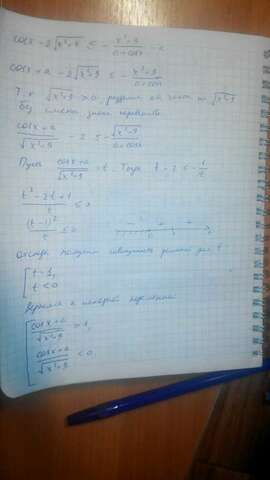 cosx - 2√(x²-9) ≤ - (x²-9)/(a+cosx) - a
cosx + a - 2√(x²-9) ≤ - (x²-9)/(a+cosx)
Т.к √(x²-9) > 0, разделим обе части на √(x²-9)
без смены знака неравенства
(cosx+a)/√(x²-9) - 2 ≤ - √(x²-9)/(a+cosx)
Пусть (cosx+a)/√(x²-9) = t. Тогда t - 2 ≤ - 1/t
(t² - 2t + 1)/t ≤ 0
(t-1)²/t ≤ 0
Отсюда получим совокупность решений для t
[ t = 1,
t < 0
Вернемся к исходной переменной
[ (cosx+a)/√(x²-9) = 1,
(cosx+a)/√(x²-9) < 0